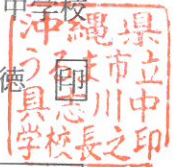 中学校
徳 印
沖縄県
うるま市立
具志川中
学校長之印